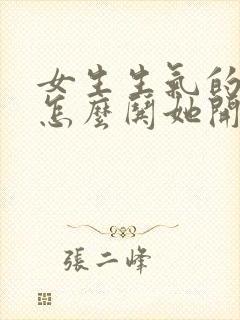 女生生氣的
怎麼鬨她開
張二峰